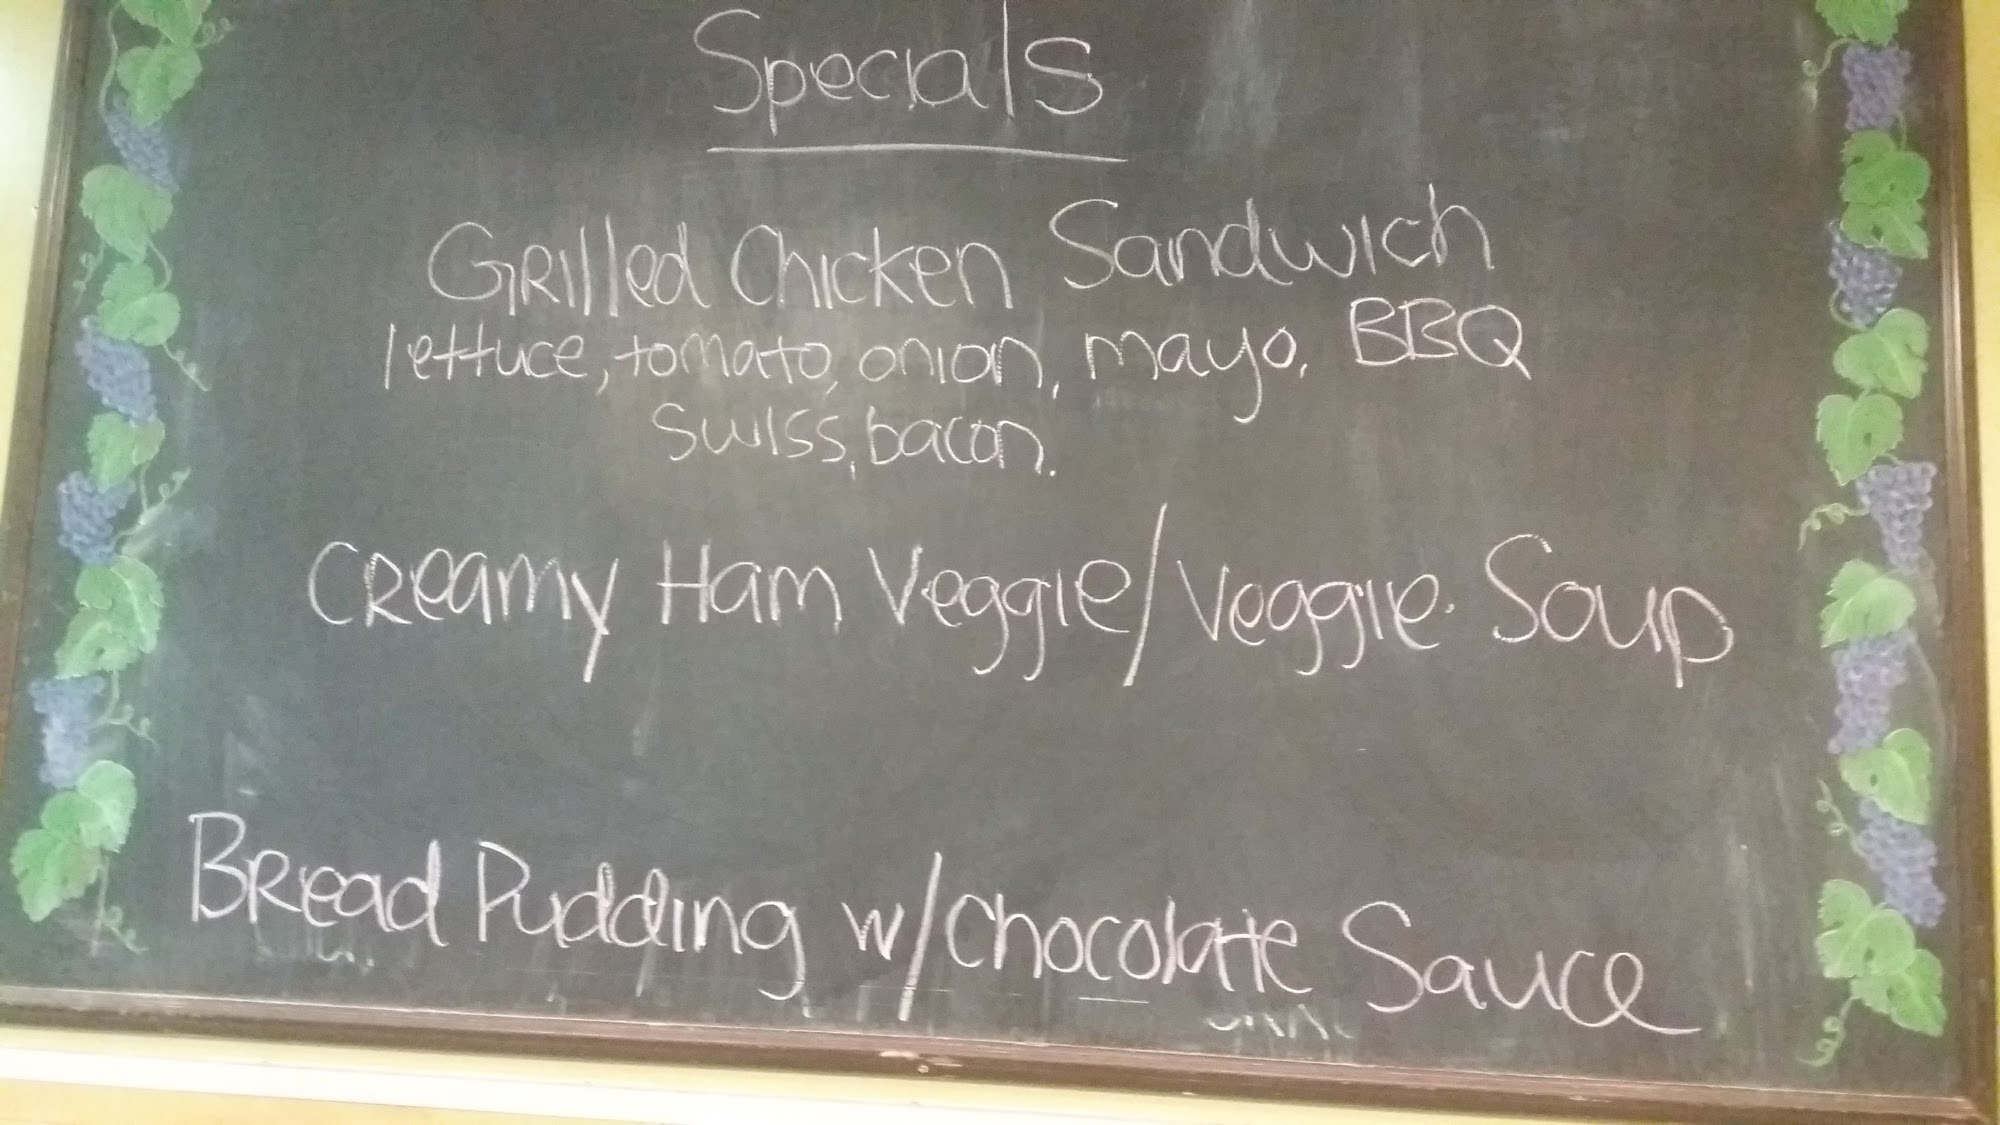 Specials
Grilled Chicken Sandwich
lettuce, tomato, onion, mayo, BBQ
swiss, bacon.
Creamy Ham Veggie/Veggie Soup
Bread Pudding w/Chocolate Sauce